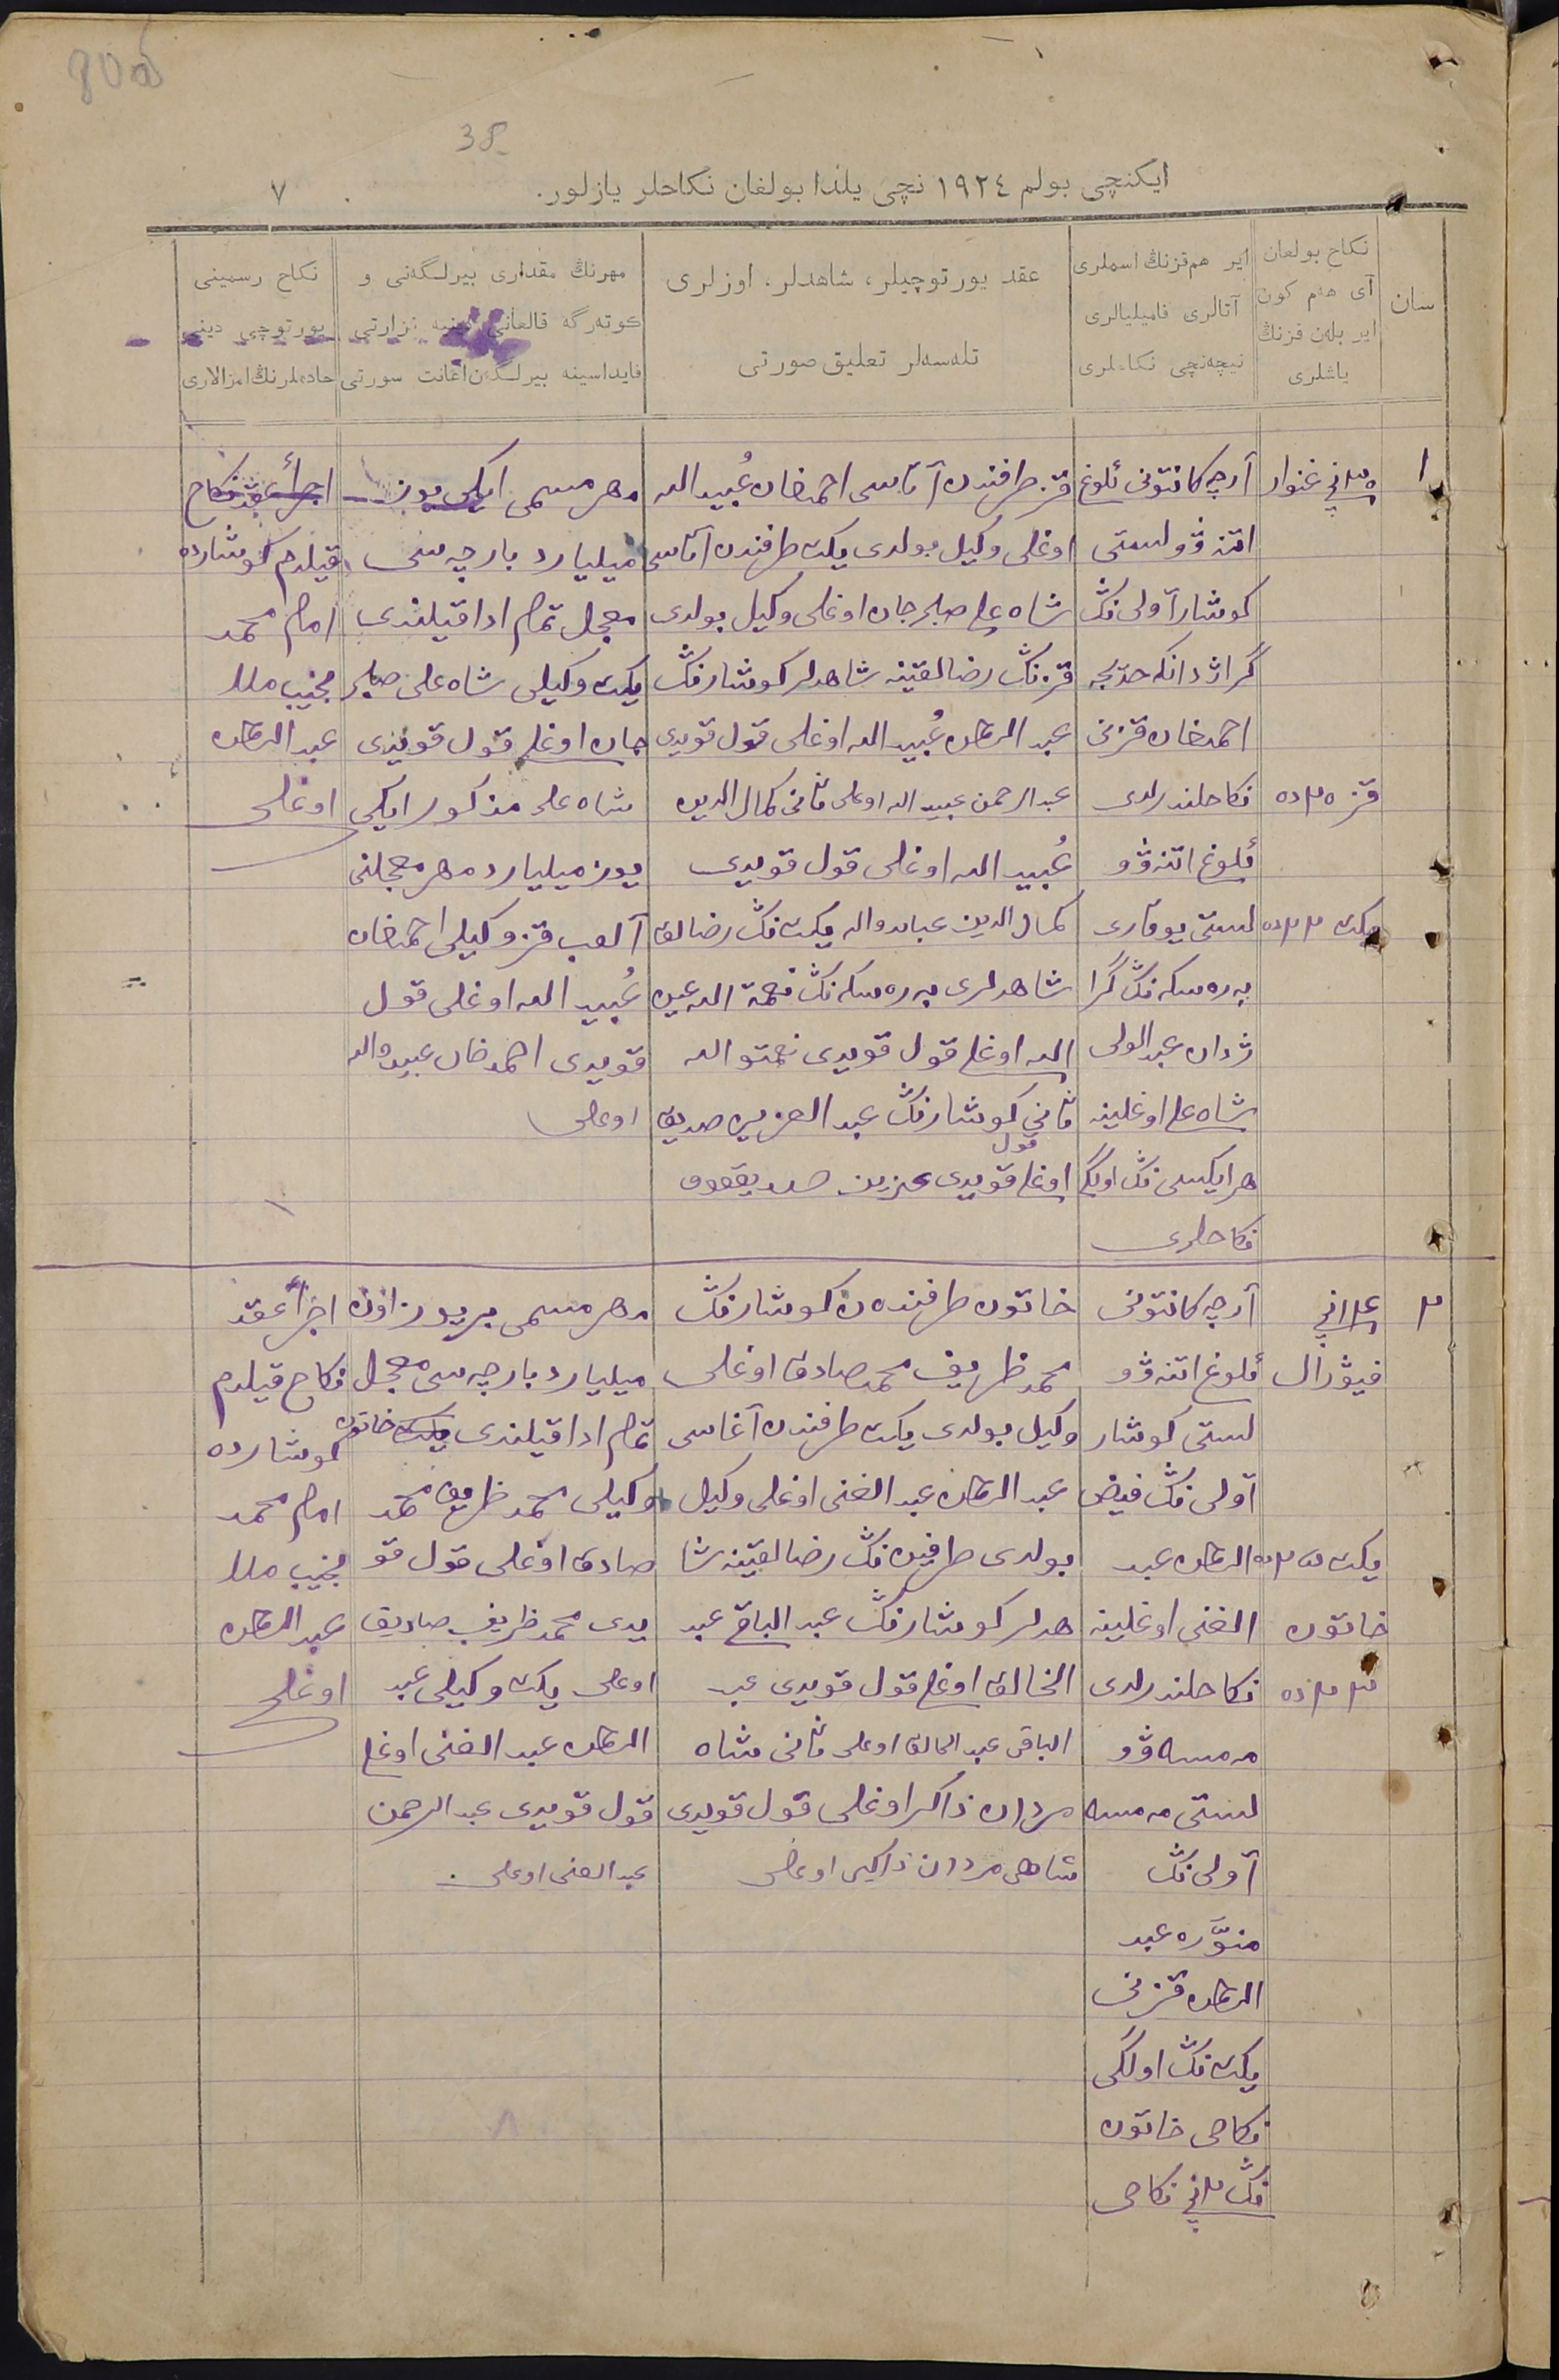 80об
38
ایکنچی بولم ١٩٢٤ نچی یلدا بولغان نکاحلر یازلور.
٧
سان
نکاح بولغان
آی هەم کون
ایر بلەن قزنڭ
یاشلری
ایر هم قزنڭ اسملری
آتالری فامیلیالری
نیچەنچی نکاحلری
عقد یورتوچیلر، شاهدلر، اوزلری
تلەسەلر تعلیق صورتی
مهرنڭ مقداری بیرلگەنی و
کوتەرگە قالغانی
فایداسینە بیرلگەن اعانت سورتی
نکاح رسمینی
یورتوچی دینی
خادملرنڭ امزالاری
١
غنوار
قز ٢٥ دە
یکت ٢٢ دە
آرچە کانتونی ئلوغ
اتنە ڤولستی
کوشار آولی نڭ
گراژدانکە خدیجە
احمدخان قزنی
نکاحلندرلدی
ئلوغ اتنە ڤو
لستی یوقاری
بەرەسکە نڭ گرا
ژدان عبدالولی
شاه علی اوغلینە
هر ایکیسی نڭ اولگی
نکاحلری
قز طرفندن آتاسی احمدخان عُبید الله
اوغلی وکیل بولدی یکت طرفندن آتاسی
شاه علی صابرجان اوغلی وکیل بولدی
قزنڭ رضالقینە شاهدلر کوشارنڭ
عبد الرحمان عُبید الله اوغلی قول قویدی
عبدالرحمن عبید الله اوغلی ثانی کمال الدین
عُبید الله اوغلی قول قویدی
کمال الدین عبیدوالله یکت نڭ رضالق
شاهدلری بەرەسکە نڭ نعمة الله عین
الله اوغلی قول قویدی نعمتوالله
ثانی کوشارنڭ عبد العزیز صدیق
قول
اوغلی قویدی عزیز صدیقوف
مهر مسمی ایکی یوز
میلیارد بارچەسی
معجل تمام ادا قیلندی
یکت وکیلی شاه علی صابر
جان اوغلی قول قویدی
شاه علی مذکور ایکی
یوز میلیارد مهر معجلنی
آلوب قز وکیلی احمدخان
عُبید الله اوغلی قول
قویدی احمدخان عبیدوالله
اوغلی
اجرأ عقد نکاح
قیلدم کوشاردە
امام محمد
مجیب ملا
عبد الرحمان
اوغلی
٢
فیورال
یکت
خاتون
٢٢ دە
آرچە کانتونی
ئلوغ اتنە ڤو
لستی کوشار
آولی نڭ فیض
الرحمان عبد
الغنی اوغلینە
نکاحلندرلدی
مەمسە ڤو
لستی مەمسە
آولی نڭ
منوّرە عبد
الرحمان قزنی
یکت نڭ اولگی
نکاحی خاتون
نڭ ٢ نچی نکاحی
خاتون طرفندەن کوشارنڭ
محمد ظریف محمد صادق اوغلی
وکیل بولدی یکت طرفندن آغاسی
عبد الرحمان عبد الغنی اوغلی وکیل
بولدی طرفین نڭ رضالقینە شا
هدلر کوشارنڭ عبد الباقی عبد
الخالق اوغلی قول قویدی عبد
الباقی عبد الخالق اوغلی ثانی شاه
مردان ذاکر اوغلی قول قویدی
شاهی مردان ذاکیر اوغلی
مهر مسمی بر یوز اون
میلیارد بارچەسی معجل
تمام ادا قیلندی یکت خاتون
وکیلی محمد ظریف محمد
صادق اوغلی قول قو
یدی محمد ظریف صادیق
اوغلی یکت وکیلی عبد
الرحمان عبد الغنی اوغلی
قول قویدی عبد الرحمن
عبد الغنی اوغلی.
اجرأ عقد
نکاح قیلدم
کوشاردە
امام محمد
مجیب ملا
عبد الرحمان
اوغلی